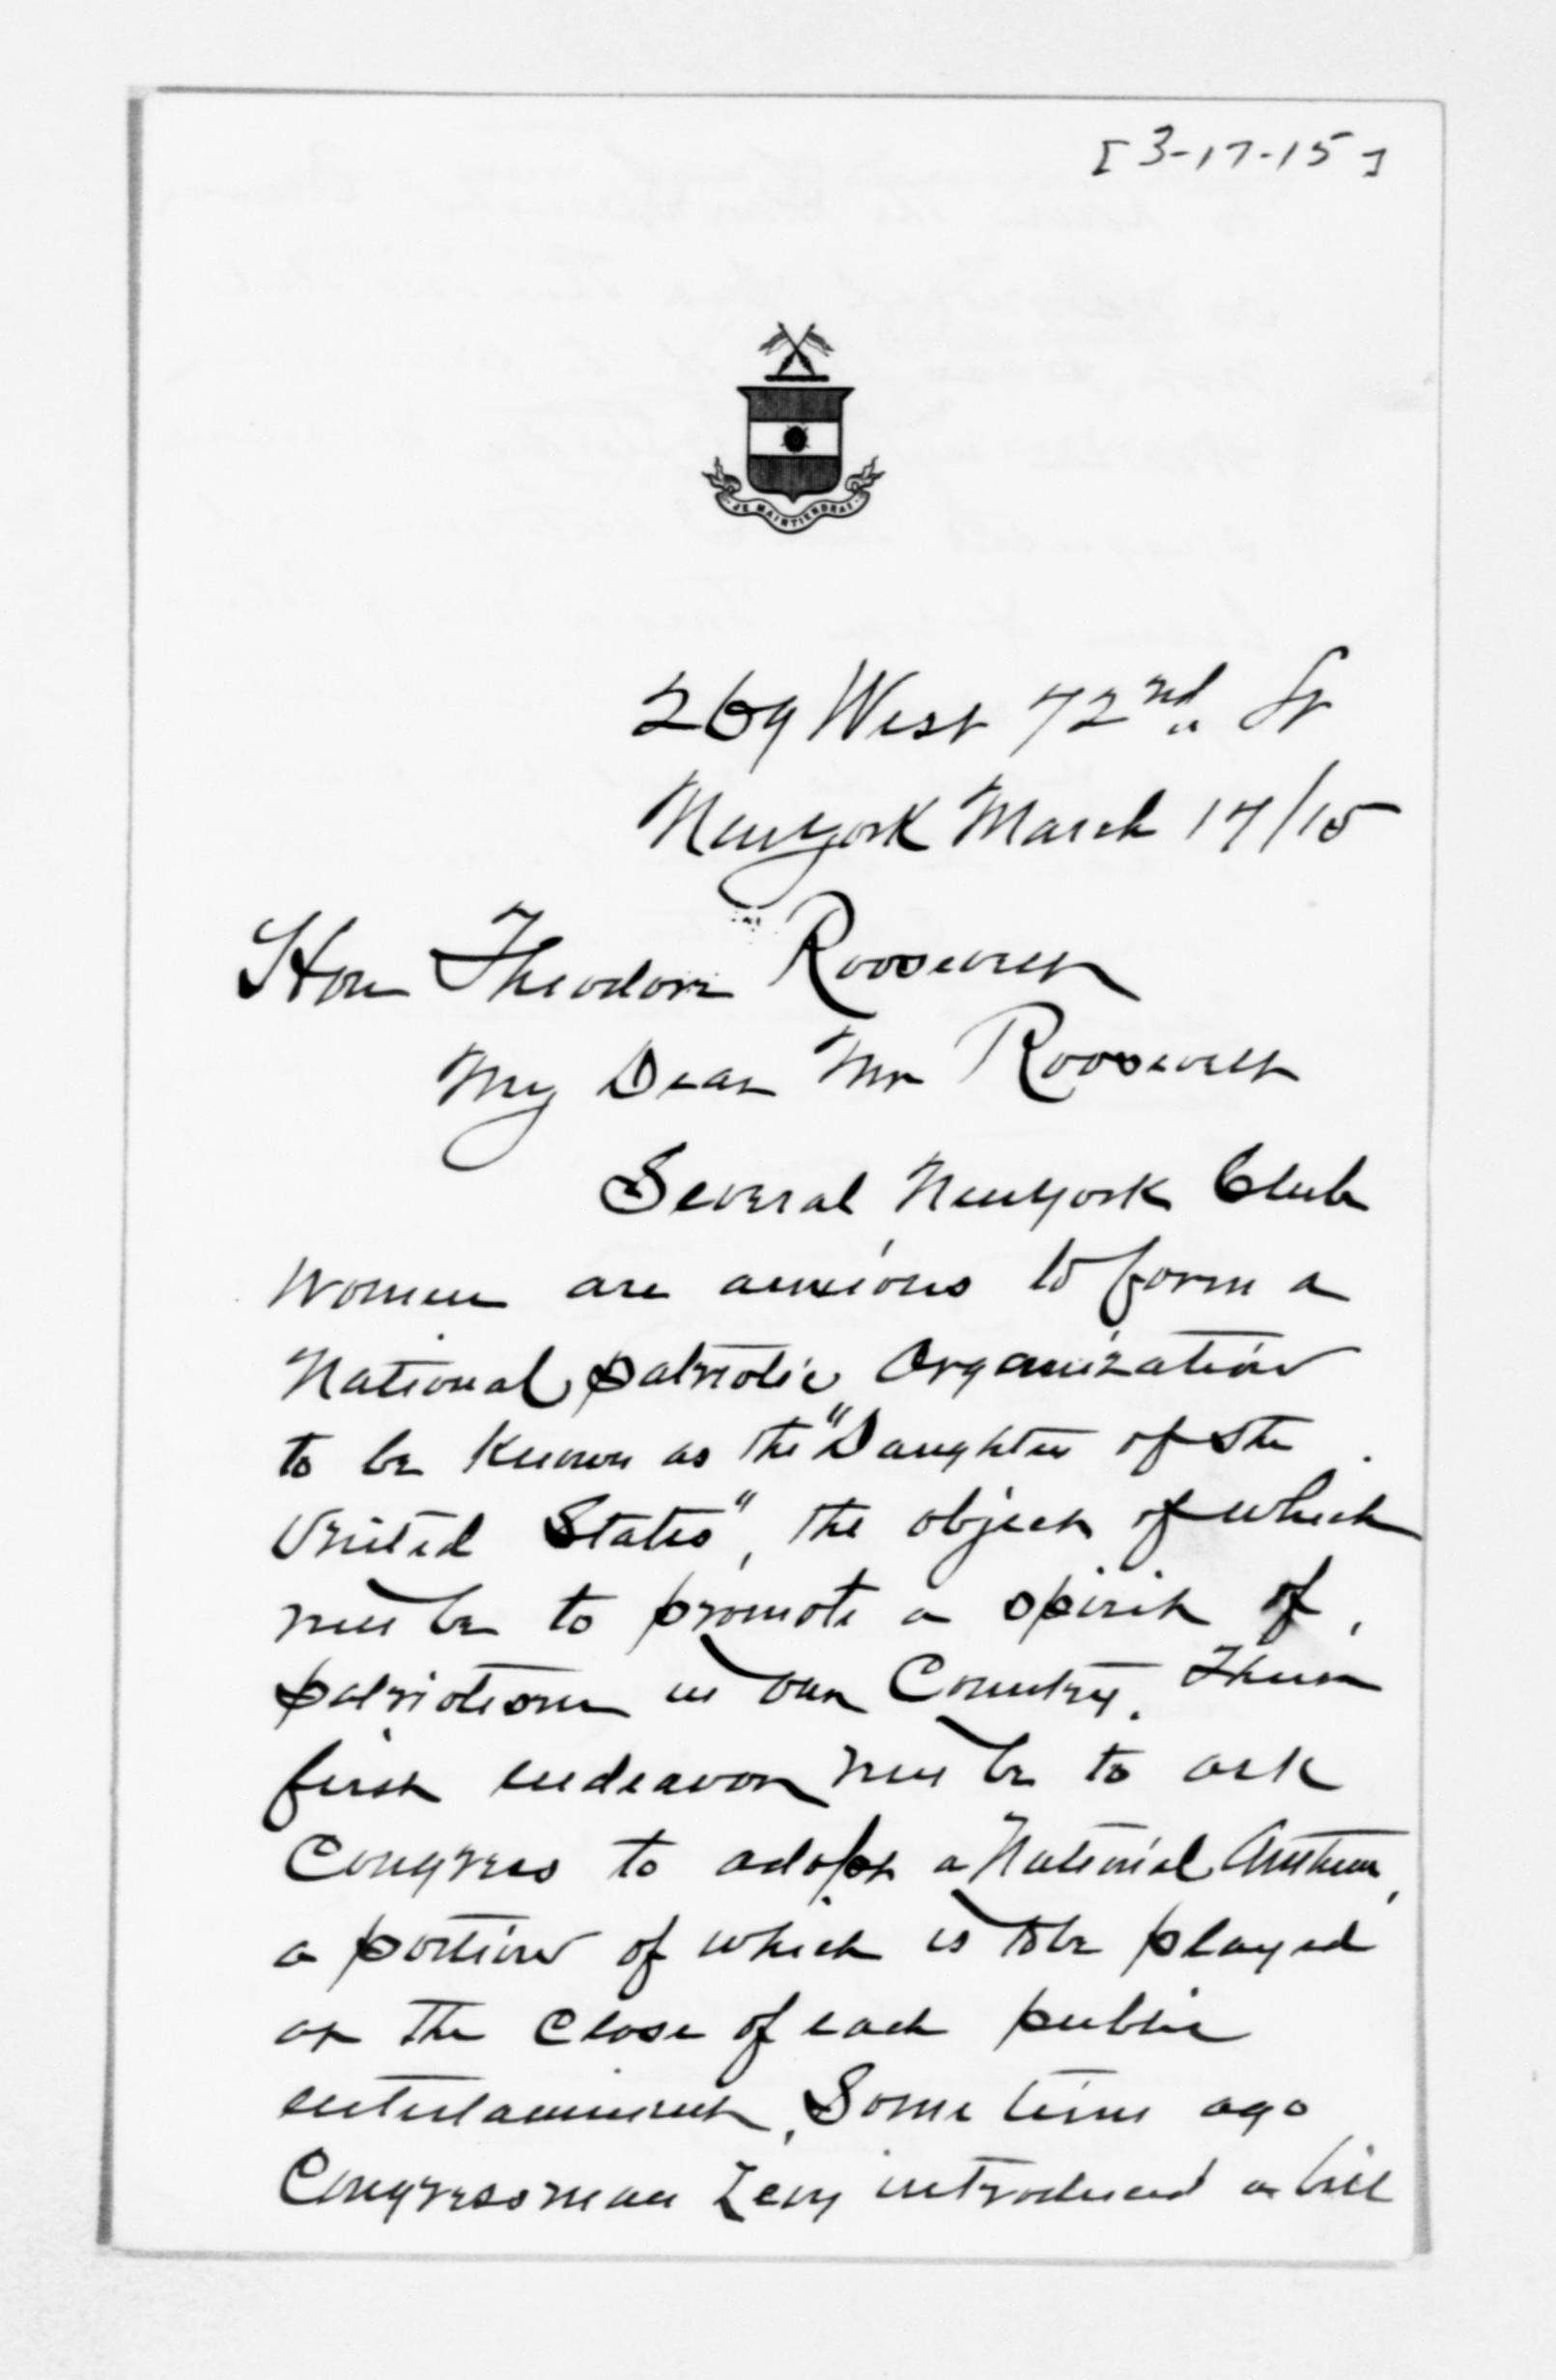 [3-17-15]
JE MAINTIENDRAI
269 West 72nd St
New York March 17/15
Hon Theodore Roosevelt
My Dear Mr Roosevelt
Several New York Club
Women are anxious to form a
National patriotic Organization
to be Known as the "Daughters of the
United States", the object of which
will be to promote a spirit of
patriotism in our Country. Their
first endeavor will be to ask
Congress to adopt a National Anthem,
a portion of which is to be played
at the close of each public
entertainment. Some time ago
Congressman Levy introduced a bill